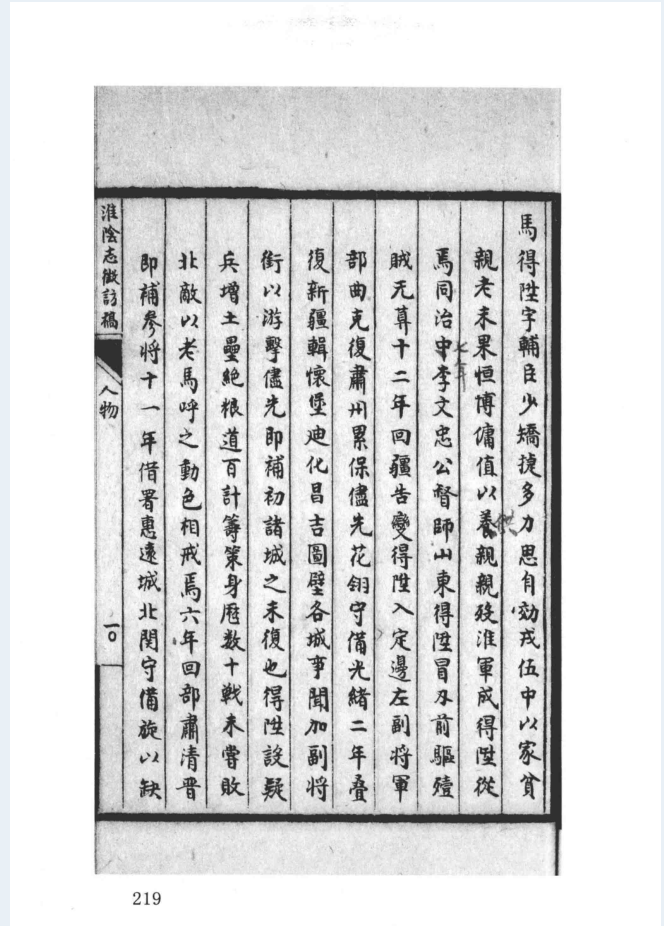 馬得陞字輔臣少矯捷多力思自効戎伍中以家貧
親老未果恒博傭值以養供親親歿淮軍成得陞從
焉同治中七年李文忠公督師山東得陞冒刃前驅殪
賊无筭十二年回疆告變得陞入定邊左副將軍
部曲克復肅州累保儘先花翎守備光緒二年叠
復新疆輯懷堡迪化昌吉圖壁各城事聞加副將
銜以游擊儘先即補初諸城之未復也得陞設疑
兵增土壘絶粮道百計籌策身歷数十戦未嘗敗
北敵以老馬呼之動色相戒焉六年回部肅清晋
即補參將十一年借署惠遠城北関守備旋以缺
淮陰志徵訪稿
人物
一〇
219